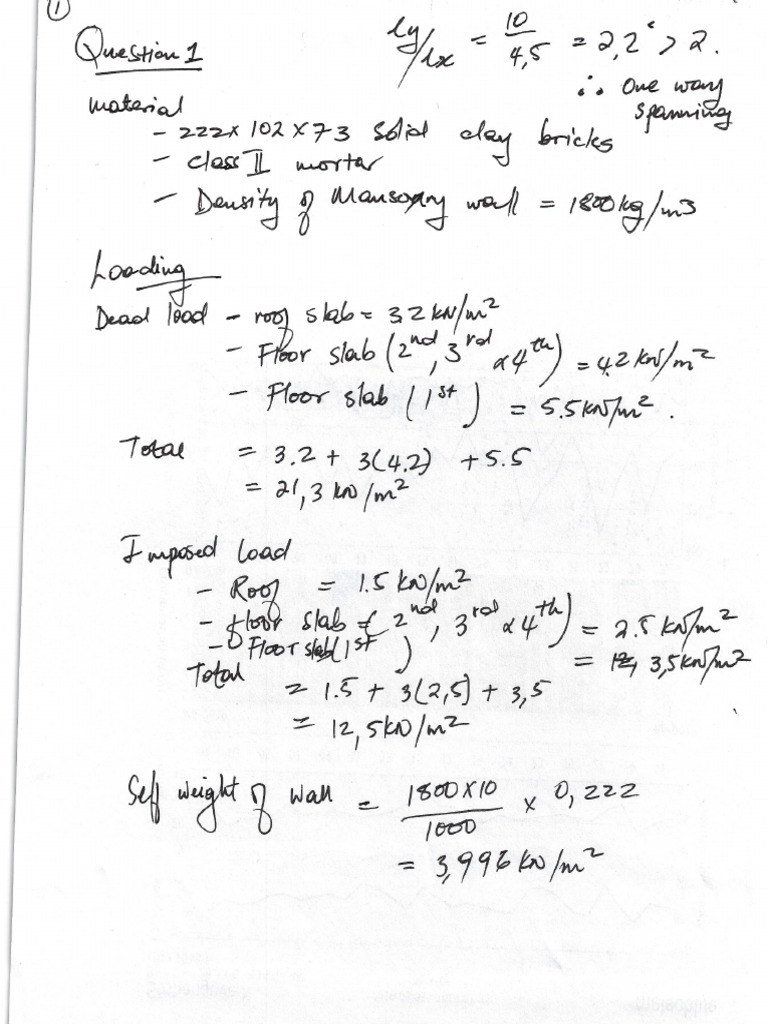 1
Question 1
ly/lx = 10/4,5 = 2,2˙ > 2.
∴ One way
spanning
material
- 222 x 102 x 73 solid clay bricks
- class II mortar
- Density of Mansonry wall = 1800 kg/m3
Loading
Dead load - roof slab = 3.2 kN/m²
- Floor slab (2nd, 3rd & 4th) = 4.2 kN/m²
- Floor slab (1st) = 5.5 kN/m².
Total = 3.2 + 3(4.2) + 5.5
= 21,3 kN/m²
Imposed load
- Roof = 1.5 kN/m²
- floor slab (2nd, 3rd & 4th) = 2.5 kN/m²
- Floor slab (1st) = 3,5 kN/m²
Total
= 1.5 + 3(2,5) + 3,5
= 12,5 kN/m²
Self weight of wall = 1800 x 10 / 1000 x 0,222
= 3,996 kN/m²